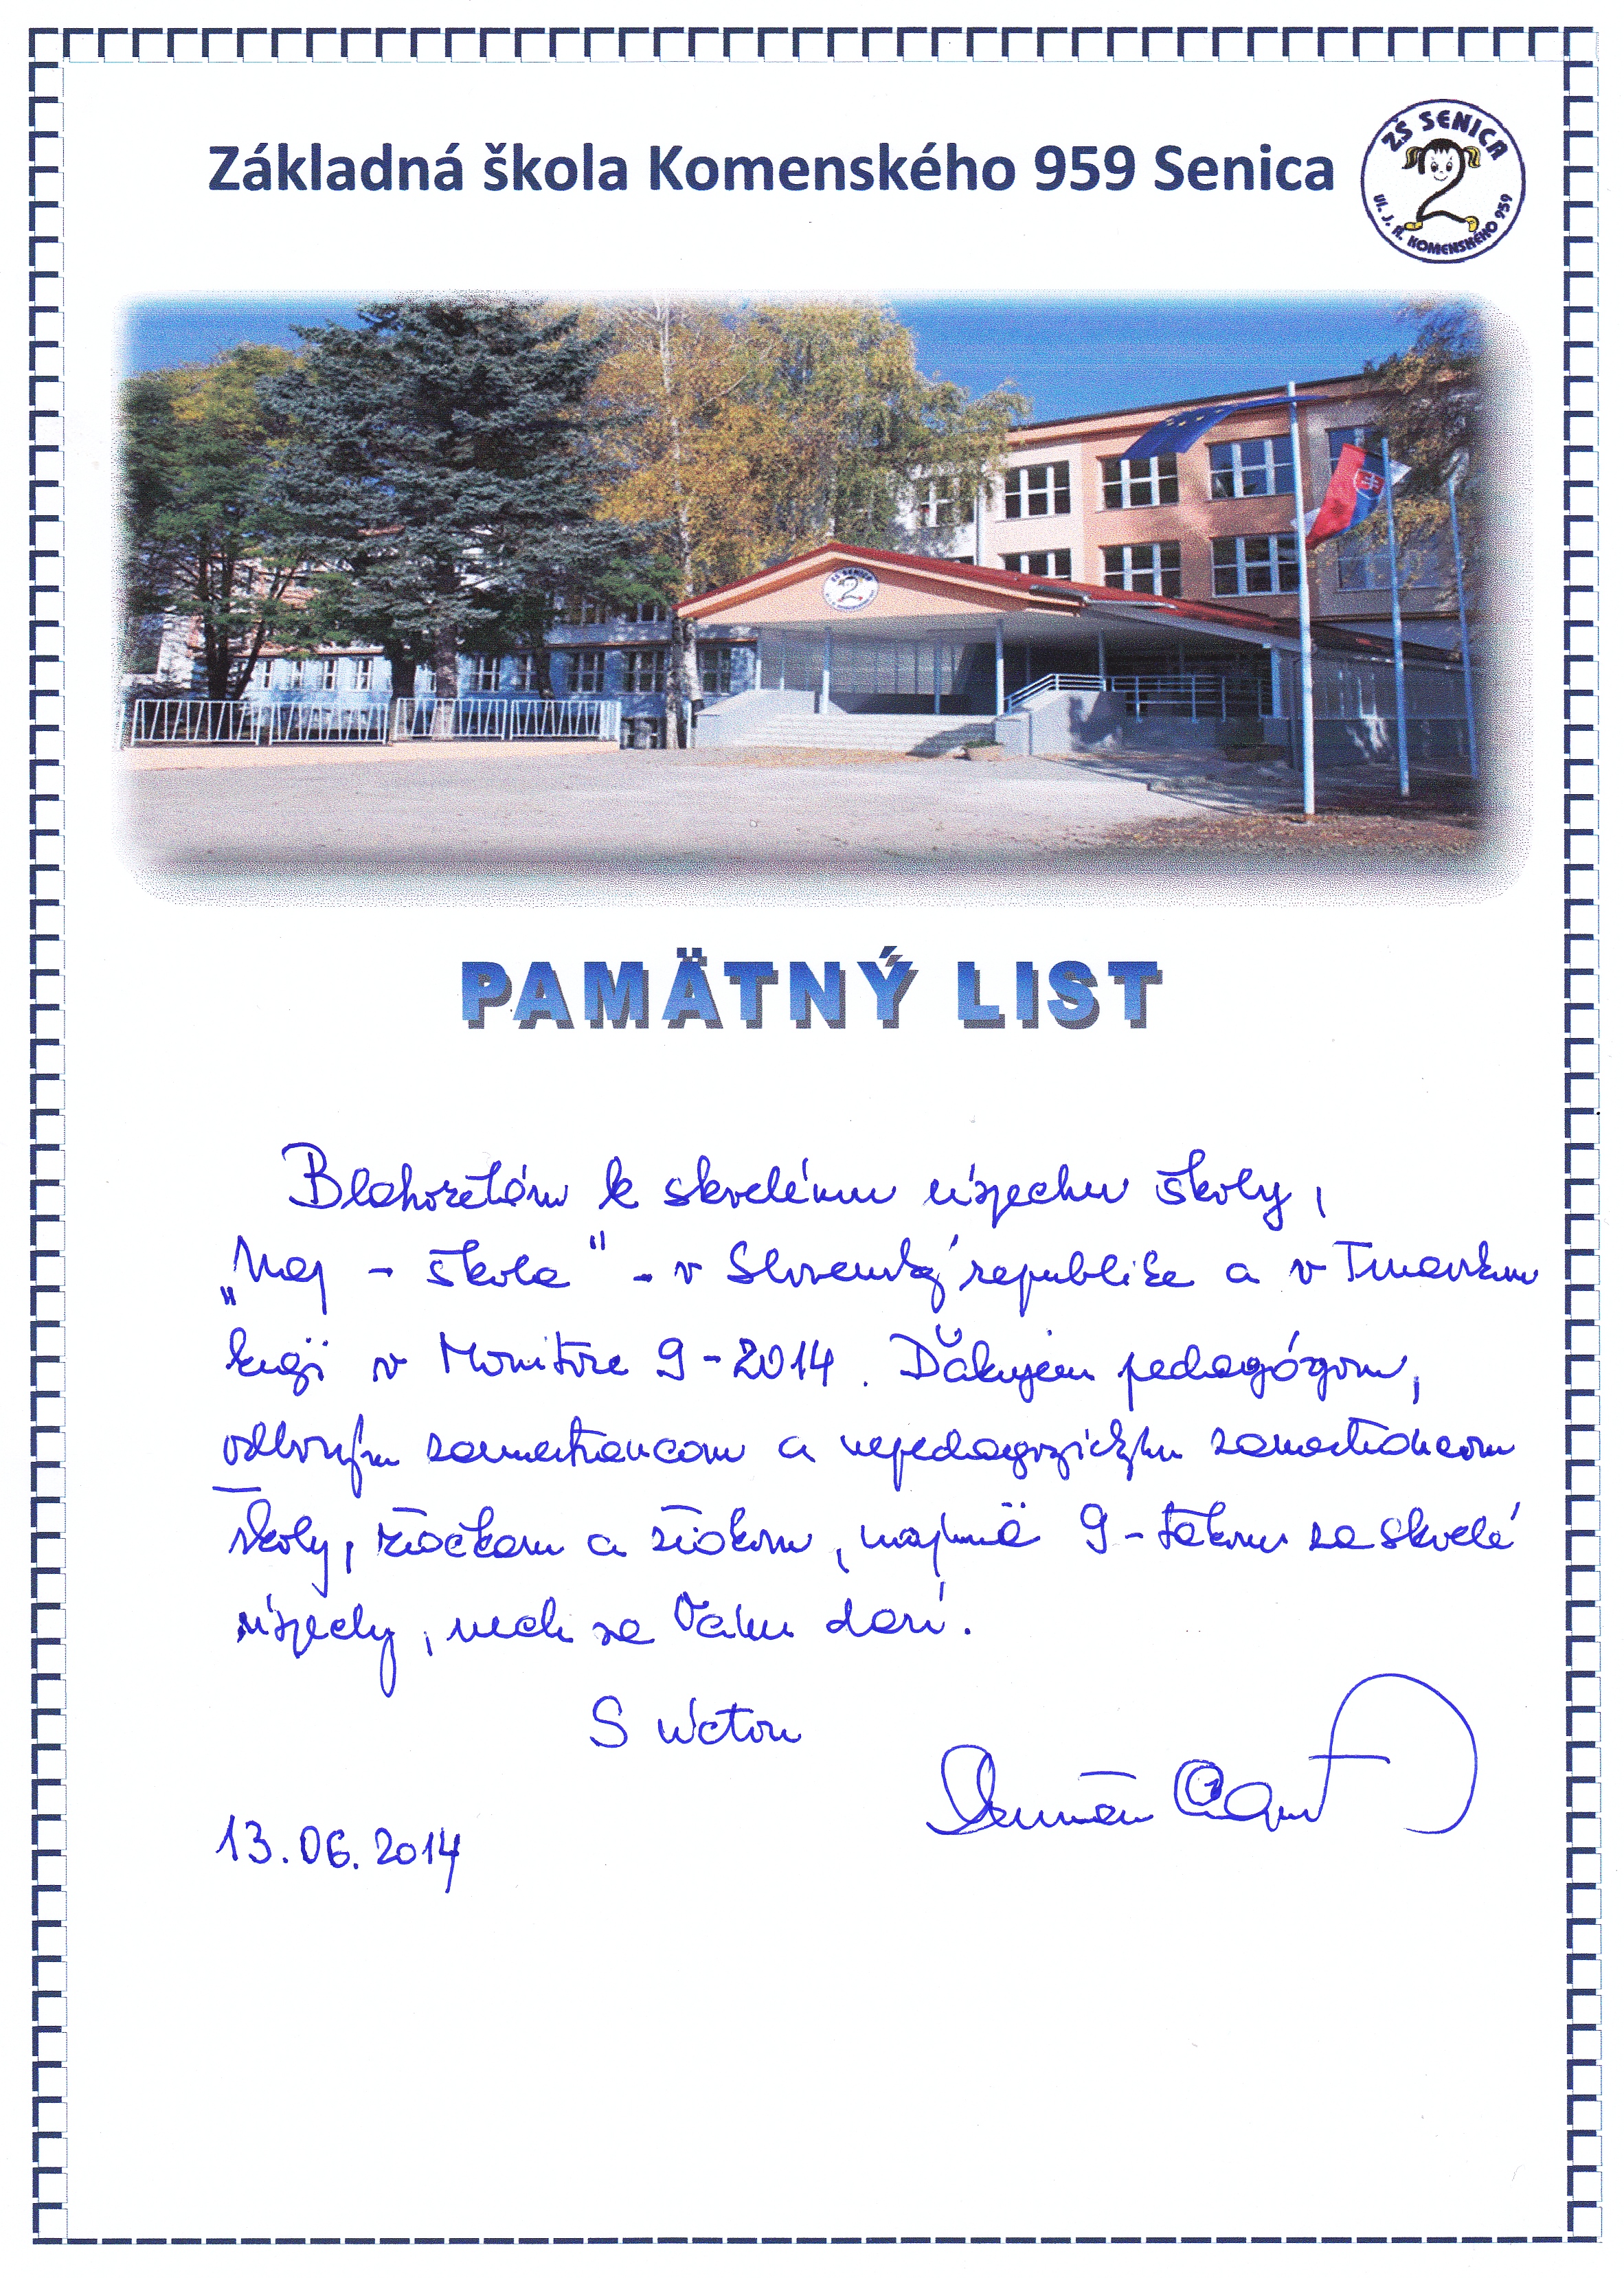 Základná škola Komenského 959 Senica
ZŠ SENICA
2
Ul. J. A. KOMENSKÉHO 959
ZŠ SENICA
2
PAMÄTNÝ LIST
Blahoželám k skvelému úspechu školy,
„Naj - škola" - v Slovenskej republike a v Trnavskom
kraji v Monitore 9-2014. Ďakujem pedagógom,
odborným zamestnancom a nepedagogickým zamestnancom
školy, žiačkam a žiakom, najmä 9-takom za skvelé
úspechy, nech sa Vám darí.
S úctou
13.06.2014